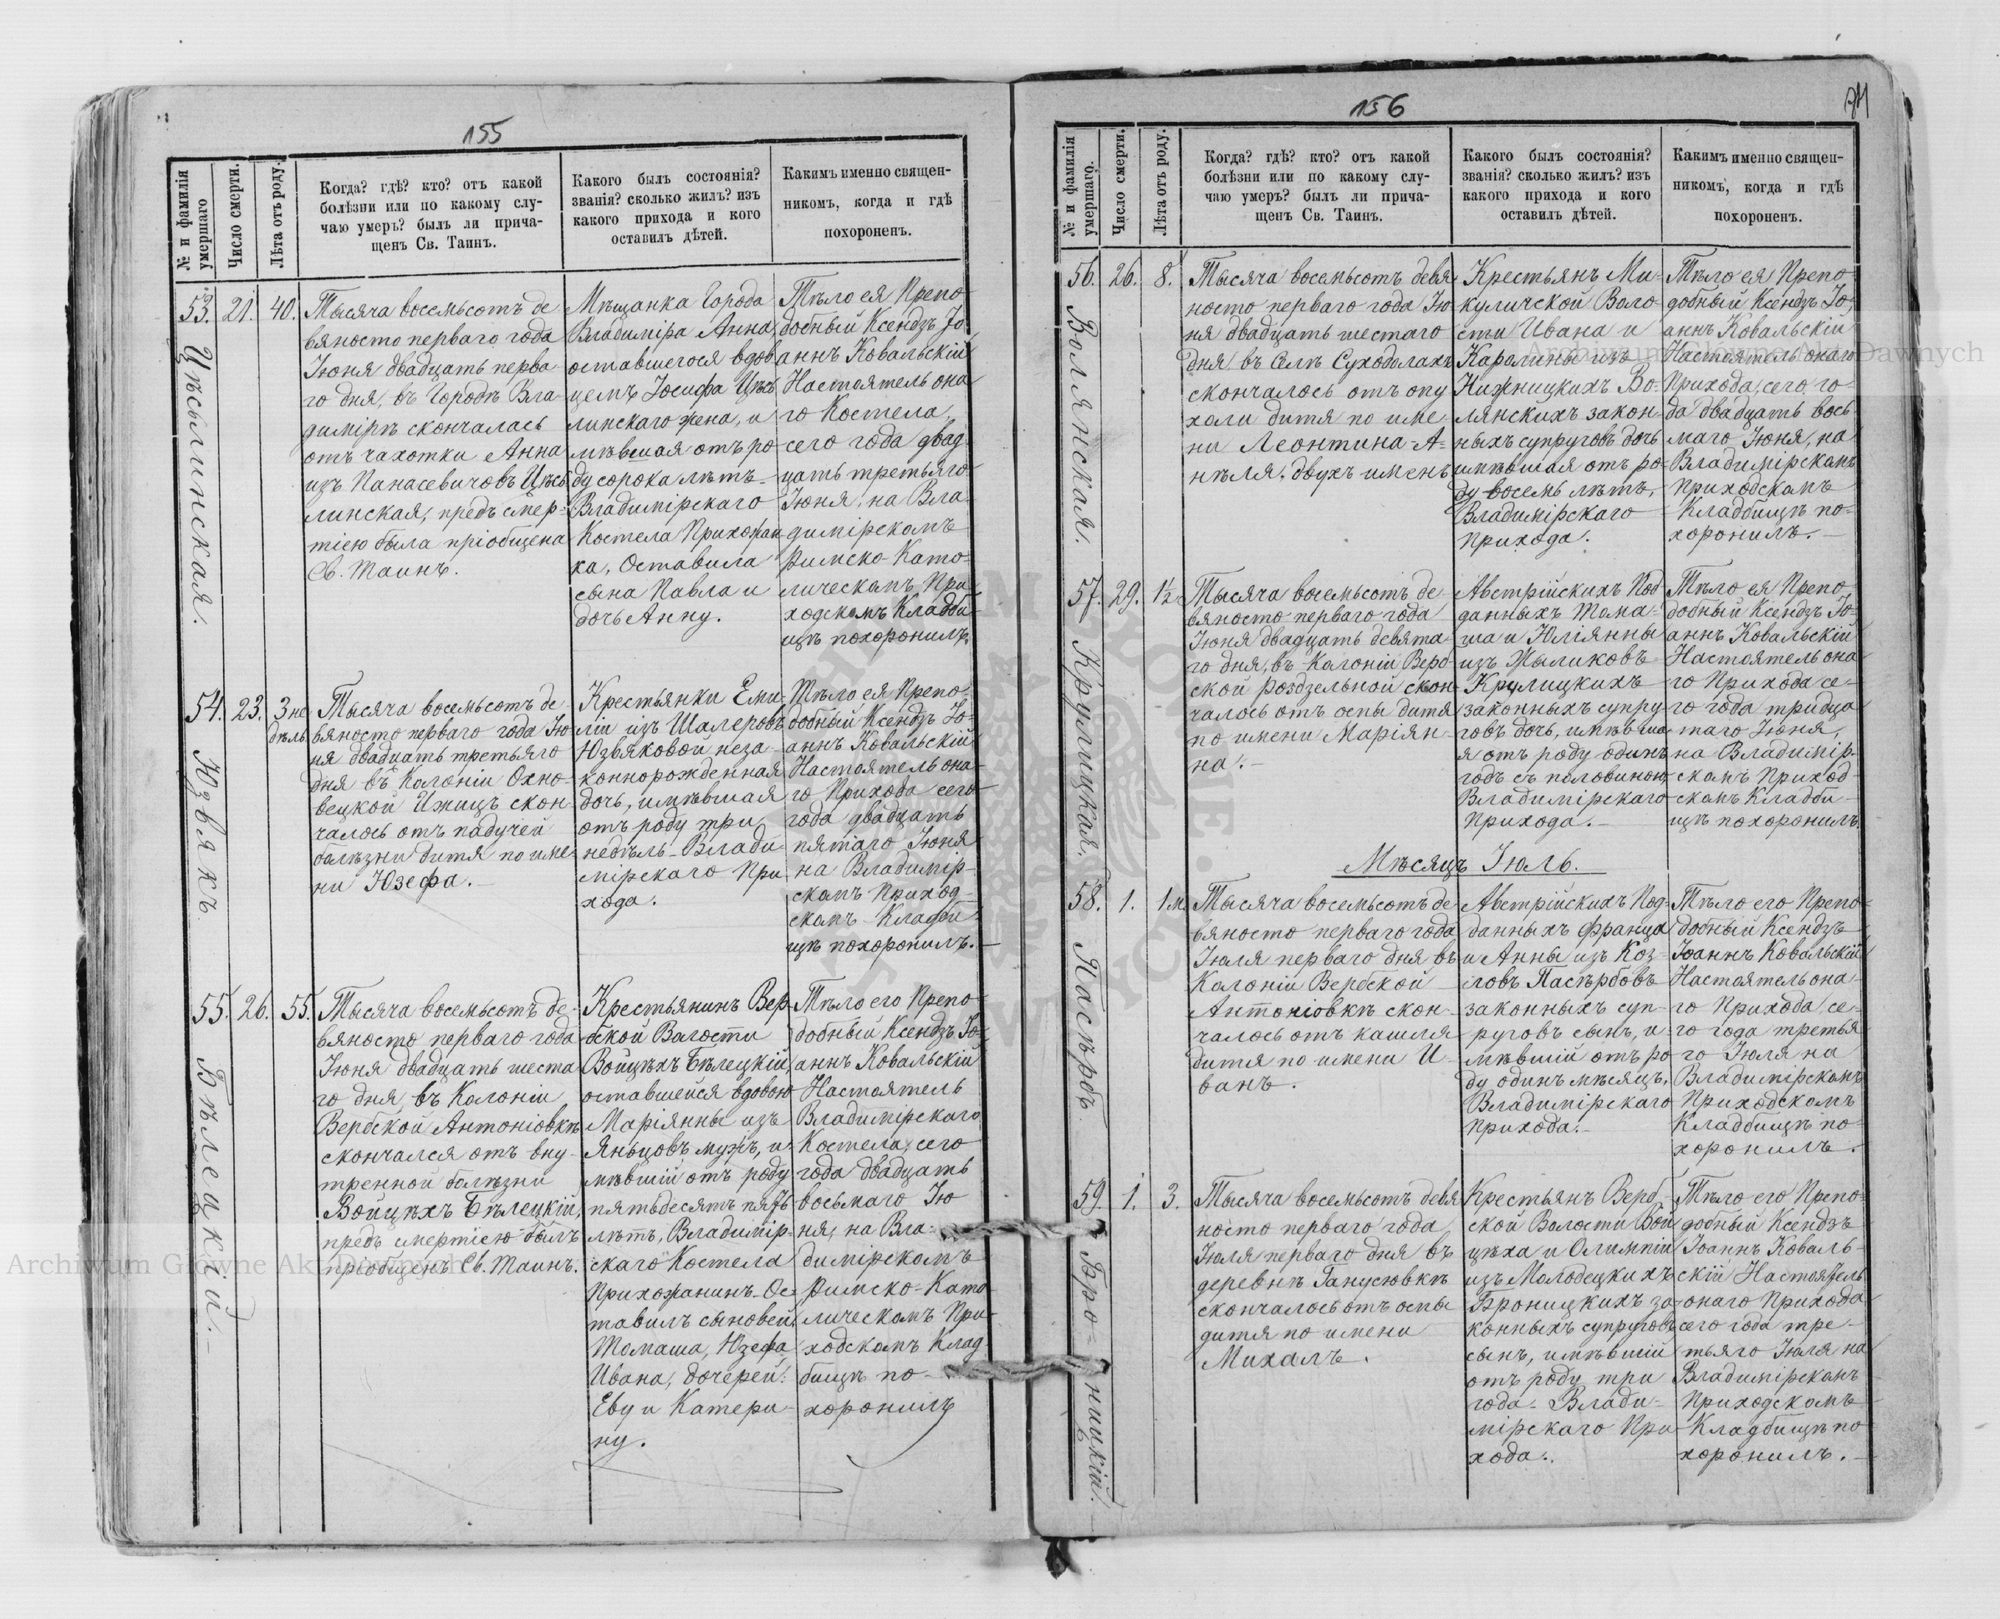 155
№ и фамилія умершаго
Число смерти.
Лѣта отъ роду.
Когда? гдѣ? кто? отъ какой
болѣзни или по какому слу-
чаю умеръ? былъ ли прича-
щенъ Св. Таинъ.
Какого былъ состоянія?
званія? сколько жилъ? изъ
какого прихода и кого
оставилъ дѣтей.
Какимъ именно священ-
никомъ, когда и гдѣ
похороненъ.
53.
Цѣсылинская.
21.
40.
Тысяча восемьсотъ де
вяносто перваго года
Іюня двадцать перва-
го дня, въ Городѣ Вла-
димірѣ скончалась
отъ чахотки Анна
изъ Панасевичовъ Цѣсы
линская, предъ смер-
тіею была пріобщена
Св. Таинъ.
Мѣщанка Города
Владиміра Анна,
оставшегося вдов
цемъ Іосифа Цѣсы
линскаго жена, и
мѣвшая отъ ро
ду сорока лѣтъ
Владимірскаго
Костела Прихожан
ка, Оставила
сына Павла и
дочь Анну.
Тѣло ея Препо-
добный Ксендзъ Іо
аннъ Ковальскій
Настоятель она
го Костела,
сего года двад
цать третьяго
Іюня, на Вла
димірскомъ
Римско-Като-
лическомъ При
ходскомъ Кладби-
щѣ похоронилъ.
54.
Юзвякъ
23.
3 не
дѣль.
Тысяча восемьсотъ де-
вяносто перваго года Ію
ня двадцать третьяго
дня въ Колоніи Охно-
вецкой Ижицъ скон-
чалось отъ падучей
болѣзни дитя по име-
ни Юзефа.
Крестьянки Еми
ліи изъ Шалеровъ
Юзвяковой неза-
коннорожденная
дочь, имѣвшая
отъ роду три
недѣль Влади
мірскаго При-
хода.
Тѣло ея Препо-
добный Ксендзъ Іо-
аннъ Ковальскій
Настоятель она-
го Прихода сего
года двадцать
пятаго Іюня
на Владимір-
скомъ Приход-
скомъ Кладби-
щѣ похоронилъ.
55.
Бѣлецкій.
26.
55.
Тысяча восемьсотъ де-
вяносто перваго года
Іюня двадцать шеста
го дня, въ Колоніи
Вербской Антоніовкѣ
скончался отъ вну-
тренной болѣзни
Войцѣхъ Бѣлецкій,
предъ смертіею былъ
пріобщенъ Св. Таинъ.
Крестьянинъ Вер-
бской Волости
Войцѣхъ Бѣлецкій,
оставшейся вдовою
Маріянны изъ
Яньцовъ мужъ, и
мѣвшій отъ роду
пятьдесятъ пять
лѣтъ, Владимір-
скаго Костела
Прихожанинъ. Ос-
тавилъ сыновей
Томаша, Юзефа
Ивана, дочерей:
Еву и Катери-
ну.
Тѣло его Препо-
добный Ксендзъ Іо-
аннъ Ковальскій
Настоятель
Владимірскаго
Костела, сего
года двадцать
восьмаго Ію
ня, на Вла-
димірскомъ
Римско-Като
лическомъ При
ходскомъ Клад-
бищѣ по-
хоронилъ
156
№ и фамилія умершаго.
Число смерти.
Лѣта отъ роду.
Когда? гдѣ? кто? отъ какой
болѣзни или по какому слу-
чаю умеръ? былъ ли прича-
щенъ Св. Таинъ.
Какого былъ состоянія?
званія? сколько жилъ? изъ
какого прихода и кого
оставилъ дѣтей.
Какимъ именно священ-
никомъ, когда и гдѣ
похороненъ.
56.
Волянская.
26.
8.
Тысяча восемьсотъ девя
носто перваго года Ію
ня двадцать шестаго
дня, въ Селѣ Суходолахъ
скончалось отъ опу
холи дитя по име
ни Леонтина-А-
нѣля, двухъ именъ
Крестьянъ Ми-
куличской Воло
сти Ивана и
Каролины изъ
Нижницкихъ Во-
лянскихъ закон-
ныхъ супруговъ дочь
имѣвшая отъ ро-
ду восемь лѣтъ,
Владимірскаго
Прихода.
Тѣло ея Препо-
добный Ксендзъ Іо-
аннъ Ковальскій
Настоятель онаго
Прихода, сего го-
да двадцать вось
маго Іюня, на
Владимірскомъ
Приходскомъ
Кладбищѣ по-
хоронилъ.
57.
Крулицкая.
29.
1½
Тысяча восемьсотъ де-
вяносто перваго года
Іюня двадцать девята
го дня, въ Колоніи Верб-
ской Роздзельной скон-
чалось отъ оспы дитя
по имени Маріян-
на.
Австрійскихъ Под
данныхъ Тома-
ша и Юліянны
изъ Жыликовъ
Крулицкихъ
законныхъ супру
говъ дочь, имѣвша
я отъ роду одинъ
годъ съ половиною,
Владимірскаго
Прихода.
Тѣло ея Препо
добный Ксендзъ Іо-
аннъ Ковальскій
Настоятель она
го Прихода се-
го года тридца
таго Іюня,
на Владимір-
скомъ Приход-
скомъ Кладби-
щѣ похоронилъ.
Мѣсяцъ Іюль.
58.
Пасѣрбъ
1.
1.м
Тысяча восемьсотъ де
вяносто перваго года
Іюля перваго дня въ
Колоніи Вербской
Антоніовкѣ скон-
чалось отъ кашля
дитя по имени И-
ванъ.
Австрійскихъ Под-
данныхъ Францa
и Анны изъ Коз-
ловъ Пасѣрбовъ
законныхъ суп-
руговъ сынъ, и-
мѣвшій отъ ро
ду одинъ мѣсяцъ,
Владимірскаго
Прихода.
Тѣло его Препо-
добный Ксендзъ
Іоаннъ Ковальскій
Настоятель она-
го Прихода, се-
го года третья
го Іюля на
Владимірскомъ
Приходскомъ
Кладбищѣ по
хоронилъ.
59.
Бро-ницкій.
1.
3.
Тысяча восемьсотъ девя
носто перваго года,
Іюля перваго дня въ
деревнѣ Ганусювкѣ
скончалось отъ оспы
дитя по имени
Михалъ.
Крестьянъ Верб-
ской Волости Вой
цѣха и Олимпіи
изъ Молодецкихъ
Броницкихъ за-
конныхъ супруговъ
сынъ, имѣвшій
отъ роду три
года. Влади-
мірскаго При
хода.
Тѣло его Препо-
добный Ксендзъ
Іоаннъ Коваль-
скій Настоятель
онаго Прихода
сего года тре-
тьяго Іюля на
Владимірскомъ
Приходскомъ
Кладбищѣ по
хоронилъ.
Archiwum Główne Akt Dawnych
Archiwum Główne Akt Dawnych